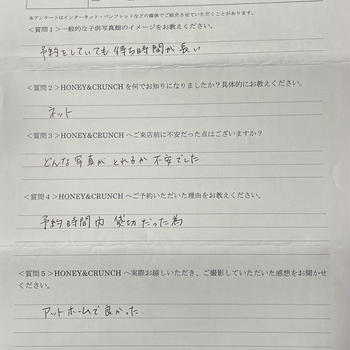 本アンケートはインターネット・パンフレットなどの媒体でご紹介させていただくことがあります。
＜質問１＞一般的な子供写真館のイメージをお教えください。
予約をしていても待ち時間が長い
＜質問２＞HONEY&CRUNCHを何でお知りになりましたか？具体的にお教えください。
ネット
＜質問３＞HONEY&CRUNCHへご来店前に不安だった点はございますか？
どんな写真がとれるか不安でした
＜質問４＞HONEY&CRUNCHへご予約いただいた理由をお教えください。
予約時間内貸切だった為
＜質問５＞HONEY&CRUNCHへ実際お越しいただき、ご撮影していただいた感想をお聞かせ
ください。
アットホームで良かった